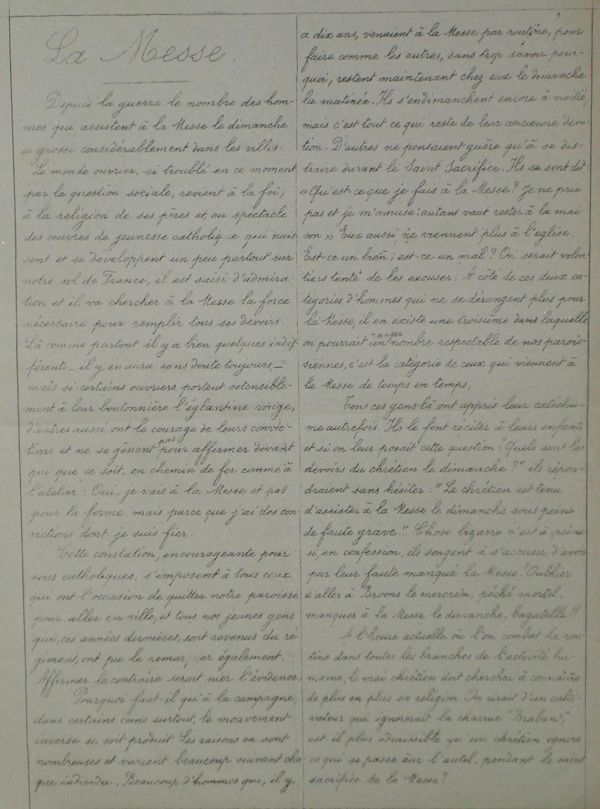 La Messe.
Depuis la guerre le nombre des hom-
mes que assistent à la Messe le dimanche
a grossi considérablement dans les villes.
Le monde ouvrier, si troublé en ce moment
par la question sociale, revient à la foi,
à la religion de ses pères et au spectacle
des œuvres de jeunesse catholique qui nais-
sent et se développent un peu partout sur
notre sol de France, il est saisi d'admira-
tion et il va chercher à la Messe la force
nécessaire pour remplir tous ses devoirs.
Là comme partout il y a bien quelques indif-
férents _ il y en aura sans doute toujours, _
mais si certains ouvriers portent ostensible-
ment à leur boutonnière l'églantine rouge,
d'autres aussi ont le courage de leurs convic-
tions et ne se gênent pas pour affirmer devant
qui que ce soit, en chemin de fer comme à
l'atelier : Oui, je vais à la Messe et pas
pour la forme, mais parce que j'ai des con-
victions dont je suis fier.
Cette constation, encourageante pour
nous catholiques, s'imposera à tous ceux
qui ont l'occasion de quitter notre paroisse
pour aller en ville, et tous nos jeunes gens
qui, ces années dernières, sont revenus du ré-
giment, ont pu le remarquer également.
Affirmer le contraire serait nier l'évidence.
Pourquoi faut-il qu'à la campagne,
dans certains coins surtout, le mouvement
inverse se soit produit. Les raisons en sont
nombreuses et varient beaucoup suivant cha-
que individu. Beaucoup d'hommes qui, il y
a dix ans, venaient à la Messe par routine, pour
faire comme les autres, sans trop savoir pour-
quoi, restent maintenant chez eux le dimanche
la matinée. Ils s'endimanchent encore à moitié,
mais c'est tout ce qui reste de leur ancienne dévo-
tion. D'autres ne pensaient guère qu'à se dis-
traire durant le Saint Sacrifice. Ils se sont dit
« Qu'est-ce que je fais à la Messe ? Je ne prie
pas et je m'amuse : autant vaut rester à la mai
son » Eux aussi ne viennent plus à l'église.
Est-ce un bien ; est-ce un mal ? On serait volon-
tiers tenté de les excuser. A côté de ces deux ca-
tégories d'hommes qui ne se dérangent plus pour
la Messe, il en existe une troisième dans laquelle
on pourrait ranger un nombre respectable de nos parois-
siennes, c'est la catégorie de ceux qui viennent à
la Messe de temps en temps.
Tous ces gens-là ont appris leur catéchis-
me autrefois. Ils le font réciter à leurs enfants
et si on leur posait cette question "Quels sont les
devoirs du chrétien le dimanche ?" ils répon-
draient sans hésiter : "Le chrétien est tenu
d'assister à la Messe le dimanche sous peine
de faute grave". Chose bizarre c'est à peine
si, en confession, ils songent à s'accuser d'avoir
par leur faute manqué la Messe ! Oublier
d'aller à Broons le mercredi, péché mortel,
manquer à la Messe le dimanche, bagatelle !!
A l'heure actuelle où l'on combat la rou-
tine dans toutes les branches de l'activité hu-
maine, le vrai chrétien doit chercher à connaître
de plus en plus sa religion. On rirait d'un culti-
vateur qui ignorerait la charrue "Brabant",
est-il plus admissible qu'un chrétien ignore
ce qui se passe sur l'autel, pendant le saint
sacrifice de la Messe ?